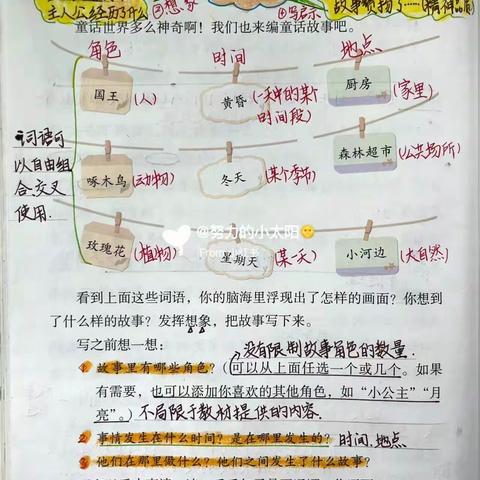 主人公经历了什么 ③想:家 ④写启示
童话世界多么神奇啊！我们也来编童话故事吧。
角色 时间 地点
国王 (人) 黄昏 (一天中的某个时间段) 厨房 (家里)
词语可以自由组合、交叉使用.
啄木鸟 (动物) 冬天 (某个季节) 森林超市 (公共场所)
@努力的小太阳
玫瑰花 (植物) 星期天 (某一天) 小河边 (大自然)
看到上面这些词语，你的脑海里浮现出了怎样的画面？你想到
了什么样的故事？发挥想象，把故事写下来。
写之前想一想：
没有限制故事角色的数量.
1 故事里有哪些角色？（可以从上面任选一个或几个。如果
有需要，也可以添加你喜欢的其他角色，如“小公主”“月
亮”。）不局限于教材提供的内容.
2 事情发生在什么时间？是在哪里发生的？ 时间、地点
3 他们在那里做什么？他们之间发生了什么故事？